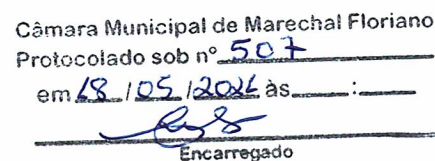 Câmara Municipal de Marechal Floriano
Protocolado sob nº 507
em 18 / 05 / às : 
Encarregado